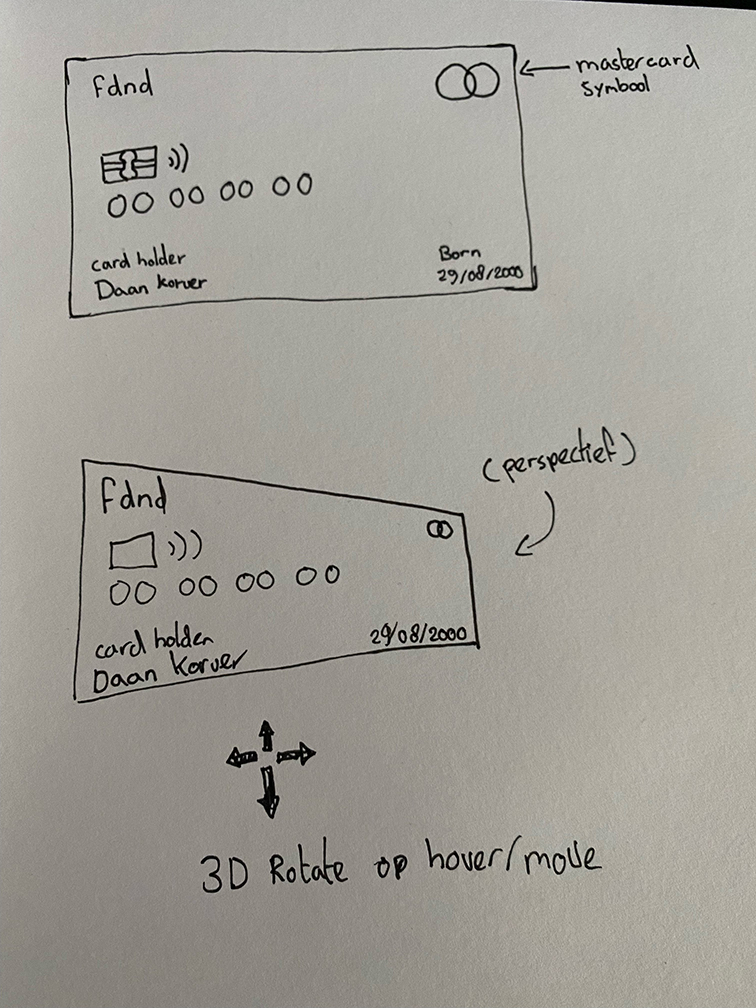 fdnd
mastercard
symbool
00 00 00 00
card holder
Daan Korver
Born
29/08/2000
(perspectief)
fdnd
00 00 00 00
card holder
Daan Korver
29/08/2000
3D Rotate op hover/move